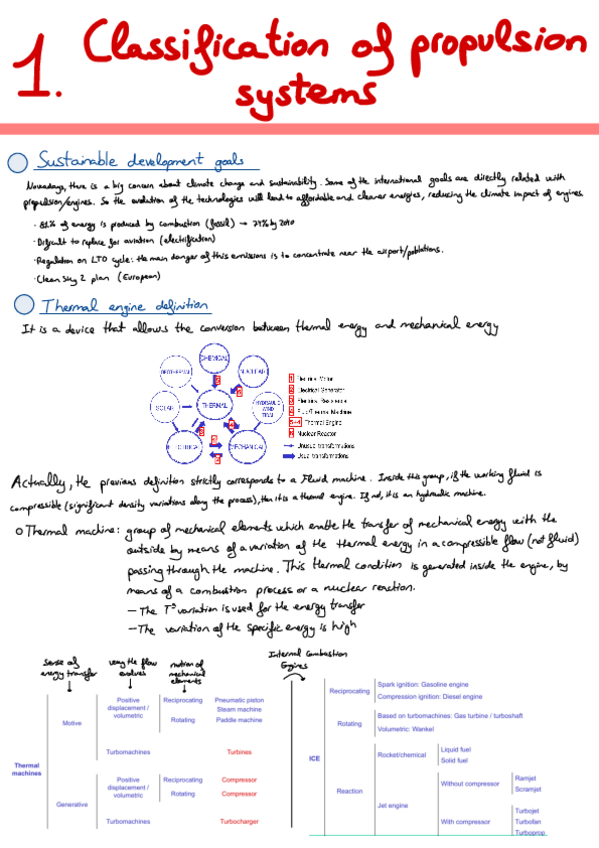 1. Classification of propulsion
systems
Sustainable development goals
Nowadays, there is a big concern about climate change and sustainability. Some of the international goals are directly related with
propulsion/engines. So the evolution of the technologies will lead to affordable and cleaner energies, reducing the climate impact of engines
· 81% of energy is produced by combustion (fossil) → by
· Difficult to replace for aviation (electrification)
· Regulation on LTO cycle: the main danger of this emissions is to concentrate near the airport/poblations.
· Clean Sky 2 plan (European)
Thermal engine definition
It is a device that allows the conversion between thermal energy and mechanical energy
CHEMICAL
GEOTHERMAL
NUCLEAR
SOLAR
THERMAL
HYDRAULIC
WIND
TIDAL
ELECTRICAL
MECHANICAL
1 Electrical Motor
2 Electrical Generator
3 Electrical Resistance
4 Fluid/Thermal Machine
5+4 Thermal Engine
6 Nuclear Reactor
Unusual transformations
Usual transformations
Actually, the previous definition strictly corresponds to a Fluid machine. Inside this group, if the working fluid is
compressible (significant density variations along the process), then it is a thermal engine. If not, it is an hydraulic machine.
o Thermal machine: group of mechanical elements which enable the transfer of mechanical energy with the
outside by means of a variation of the thermal energy in a compressible flow (not fluid)
passing through the machine. This thermal condition is generated inside the engine, by
means of a combustion process or a nuclear reaction.
— The Tª variation is used for the energy transfer
— The variation of the specific energy is high
Sense of
energy transfer
way the flow
evolves
motion of
mechanical
elements
Internal Combustion
Engines
Thermal
machines
Motive
Positive
displacement /
volumetric
Reciprocating
Pneumatic piston
Steam machine
Rotating
Paddle machine
Turbomachines
Turbines
Generative
Positive
displacement /
volumetric
Reciprocating
Compressor
Rotating
Compressor
Turbomachines
Turbocharger
ICE
Reciprocating
Spark ignition: Gasoline engine
Compression ignition: Diesel engine
Rotating
Based on turbomachines: Gas turbine / turboshaft
Volumetric: Wankel
Reaction
Rocket/chemical
Liquid fuel
Solid fuel
Jet engine
Without compressor
Ramjet
Scramjet
With compressor
Turbojet
Turbofan
Turboprop